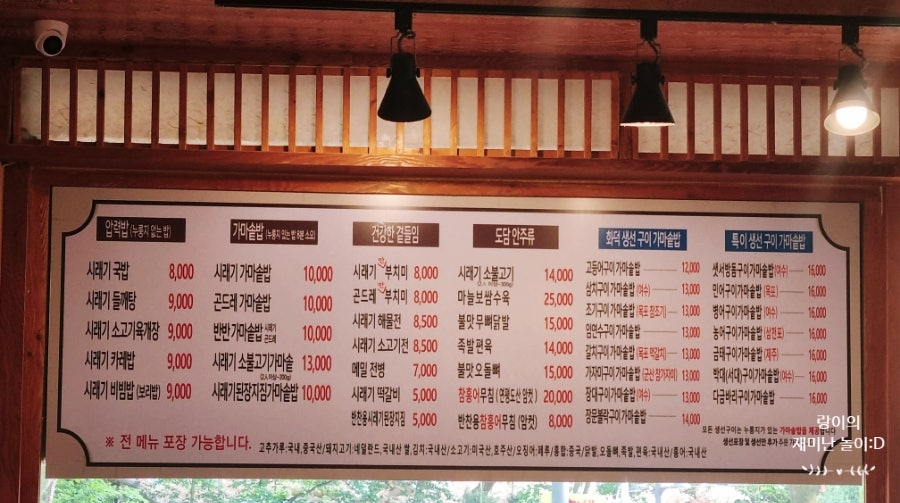 압력밥 (누룽지 없는 밥)
시래기 국밥 8,000
시래기 들깨탕 9,000
시래기 소고기육개장 9,000
시래기 카레밥 9,000
시래기 비빔밥 (보리밥) 9,000
가마솥밥 (누룽지 있는 밥 8분 소요)
시래기 가마솥밥 10,000
곤드레 가마솥밥 10,000
반반 가마솥밥 시래기 곤드레 10,000
시래기 소불고기가마솥 13,000
(2人 이상-200g)
시래기된장지짐가마솥밥 10,000
건강한 곁들임
시래기 부치미 8,000
곤드레 부치미 8,000
시래기 해물전 8,500
시래기 소고기전 8,500
메밀 전병 7,000
시래기 떡갈비 5,000
반찬용시래기된장지짐 5,000
도담 안주류
시래기 소불고기 14,000
(2人 이상-200g)
마늘보쌈수육 25,000
불맛 무뼈닭발 15,000
족발 편육 14,000
불맛 오돌뼈 15,000
참홍어무침 (연평도산 암컷) 20,000
반찬용참홍어무침 (암컷) 8,000
화덕 생선 구이 가마솥밥
고등어구이가마솥밥 12,000
삼치구이가마솥밥 (여수) 13,000
조기구이가마솥밥 (목포 참조기) 13,000
임연수구이가마솥밥 13,000
갈치구이가마솥밥 (목포 먹갈치) 13,000
가자미구이가마솥밥 (군산 참가자미) 13,000
장대구이가마솥밥 (여수) 13,000
장문볼락구이가마솥밥 14,000
특이 생선 구이 가마솥밥
샛서방돔구이가마솥밥(여수) 16,000
민어구이가마솥밥 (목포) 16,000
병어구이가마솥밥 (여수) 16,000
농어구이가마솥밥 (삼천포) 16,000
금태구이가마솥밥 (제주) 16,000
박대(서대)구이가마솥밥 (여수) 16,000
다금바리구이가마솥밥 16,000
모든 생선구이는 누룽지가 있는 가마솥밥을 제공합니다
생선포장 및 생선만 추가 주문
※ 전 메뉴 포장 가능합니다.
고추가루:국내,중국산/돼지고기:네덜란드, 국내산 쌀,김치:국내산/소고기:미국산, 호주산/오징어:페루/홍합:중국/닭발,오돌뼈,족발,편육:국내산/홍어:국내산
랑이의
재미난 놀이:D